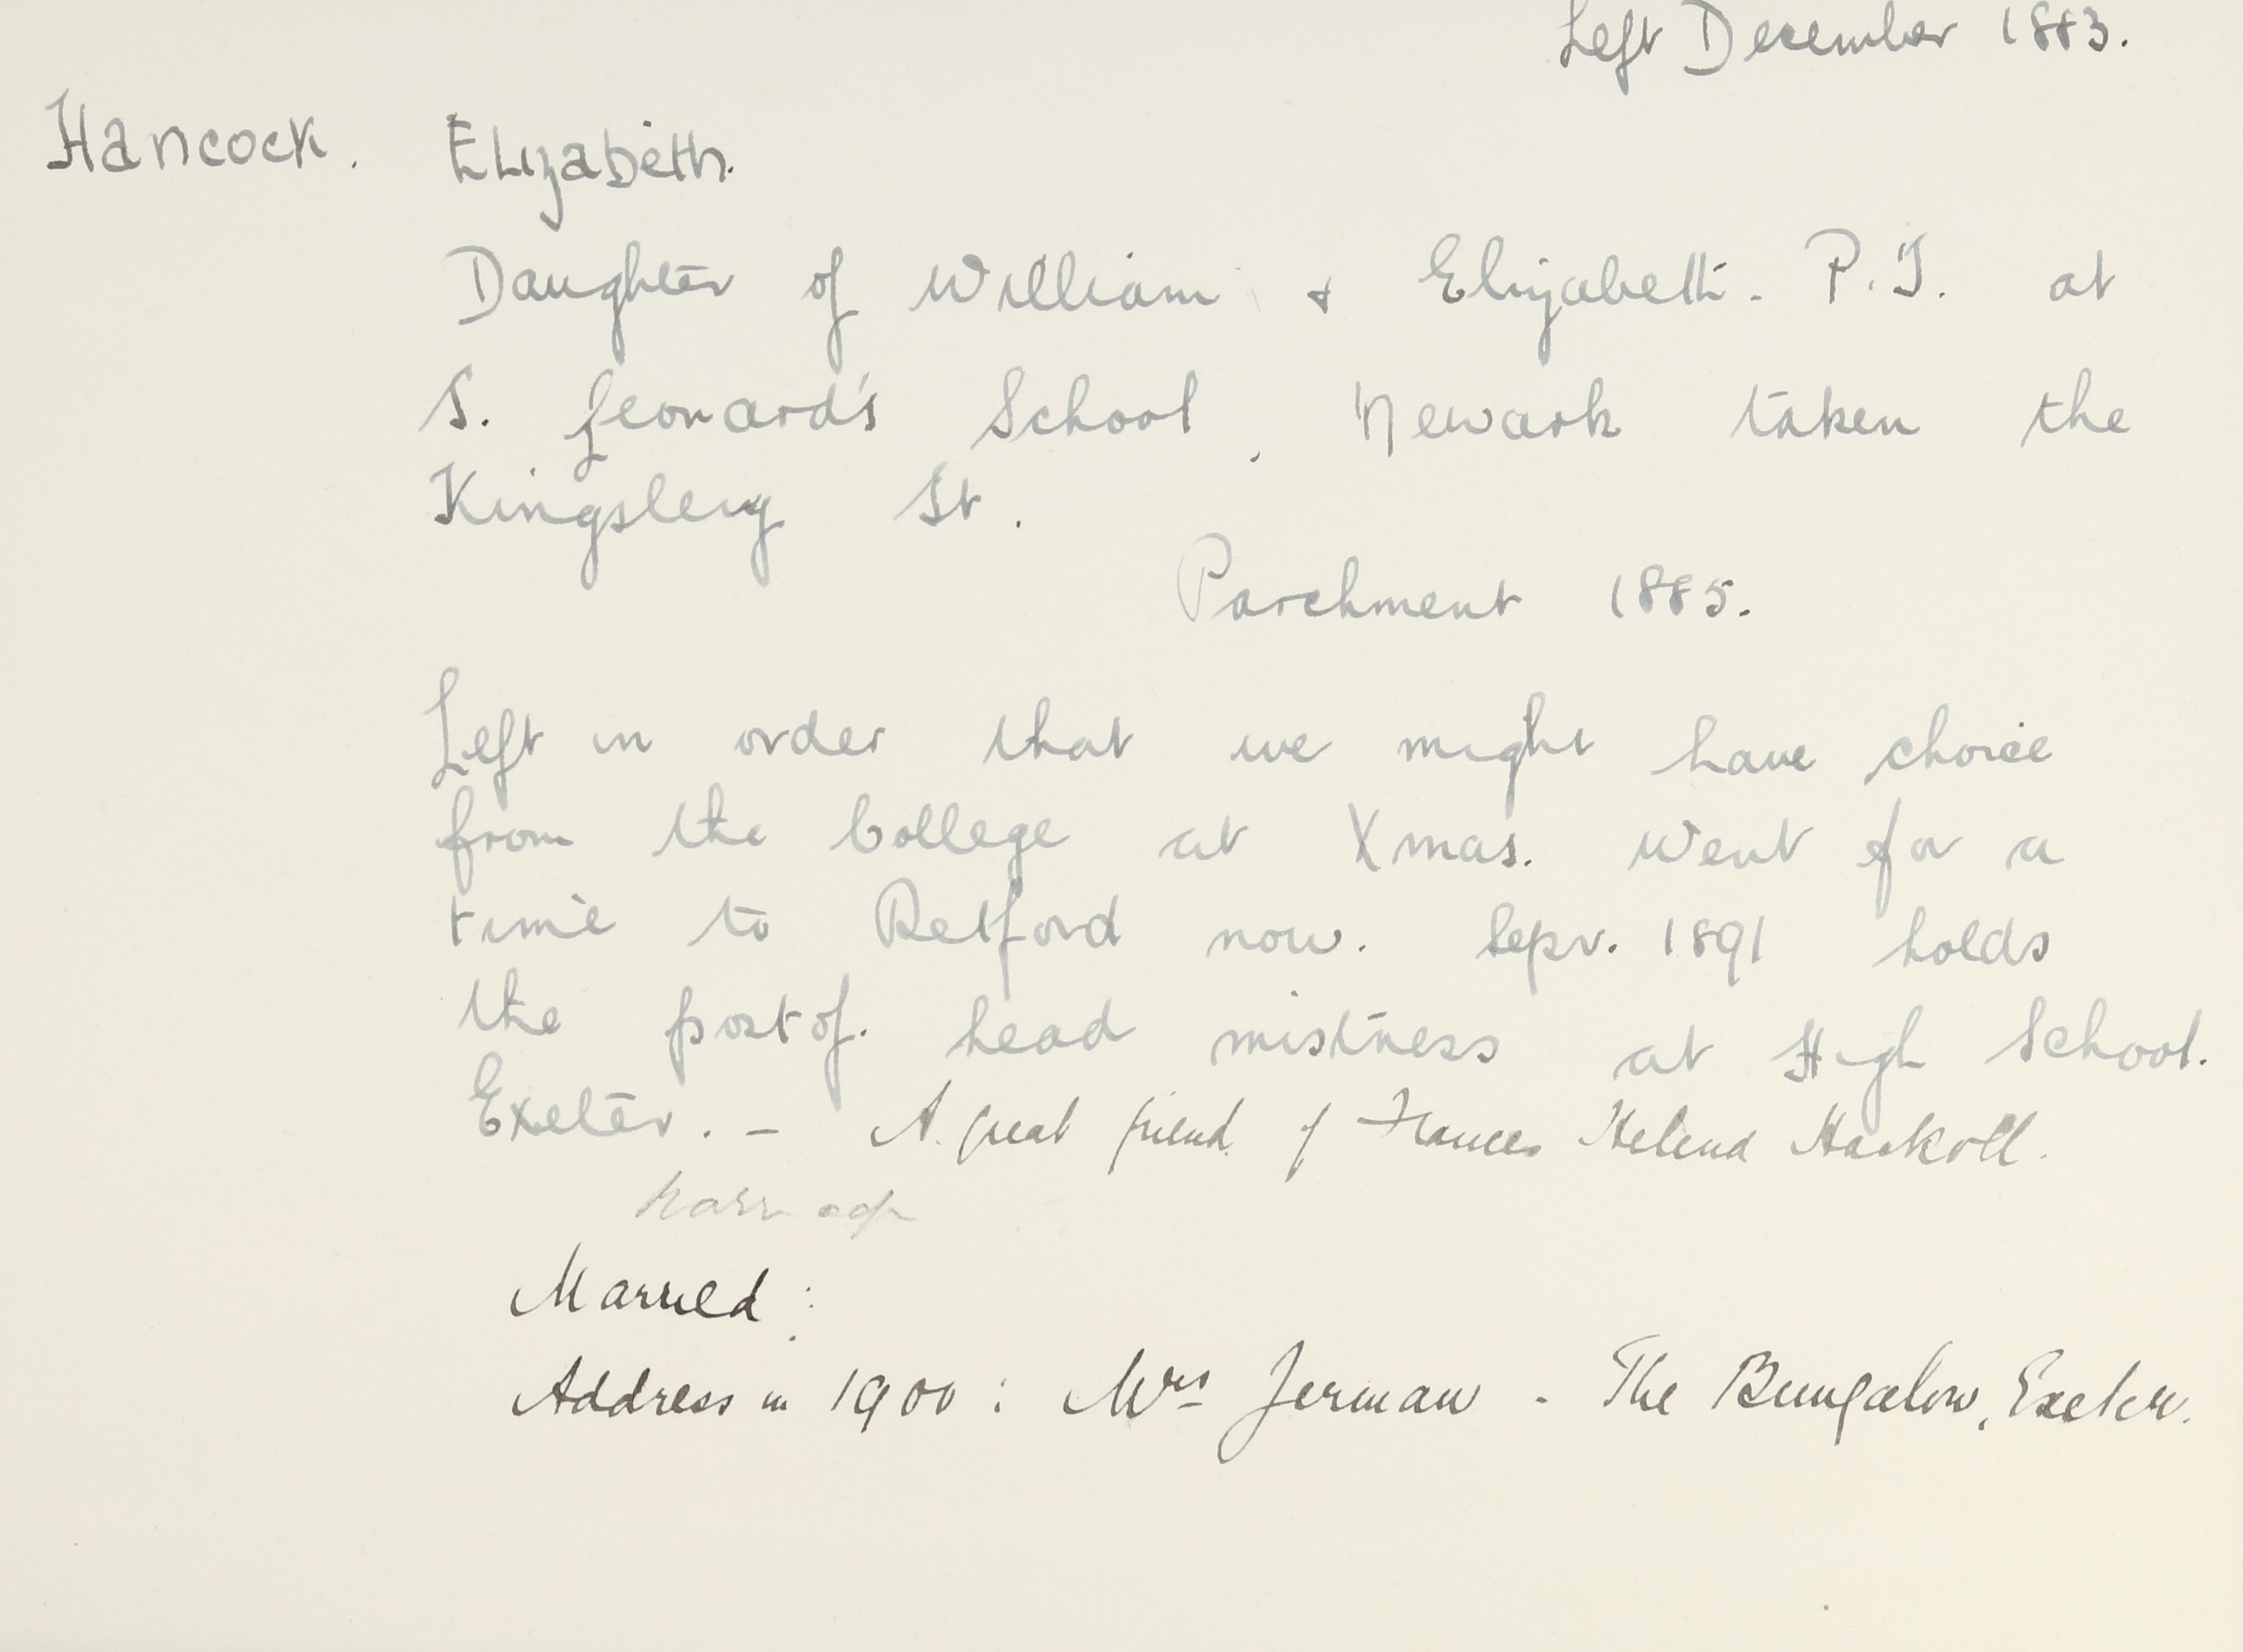 Left December 1883.
Hancock. Elizabeth.
Daughter of William & Elizabeth. P.T. at
S. Leonard's School, Newark taken the
Kingsley St.
Parchment 1885.
Left in order that we might have choice
from the College at Xmas. Went for a
time to Retford now. Sept. 1891 holds
the post of. head mistress at High School.
Exeter. - A great friend of Frances Helena Hackoll.
Married
Married :
Address in 1900 : Mrs Jerman - The Bungalow, Exeter.